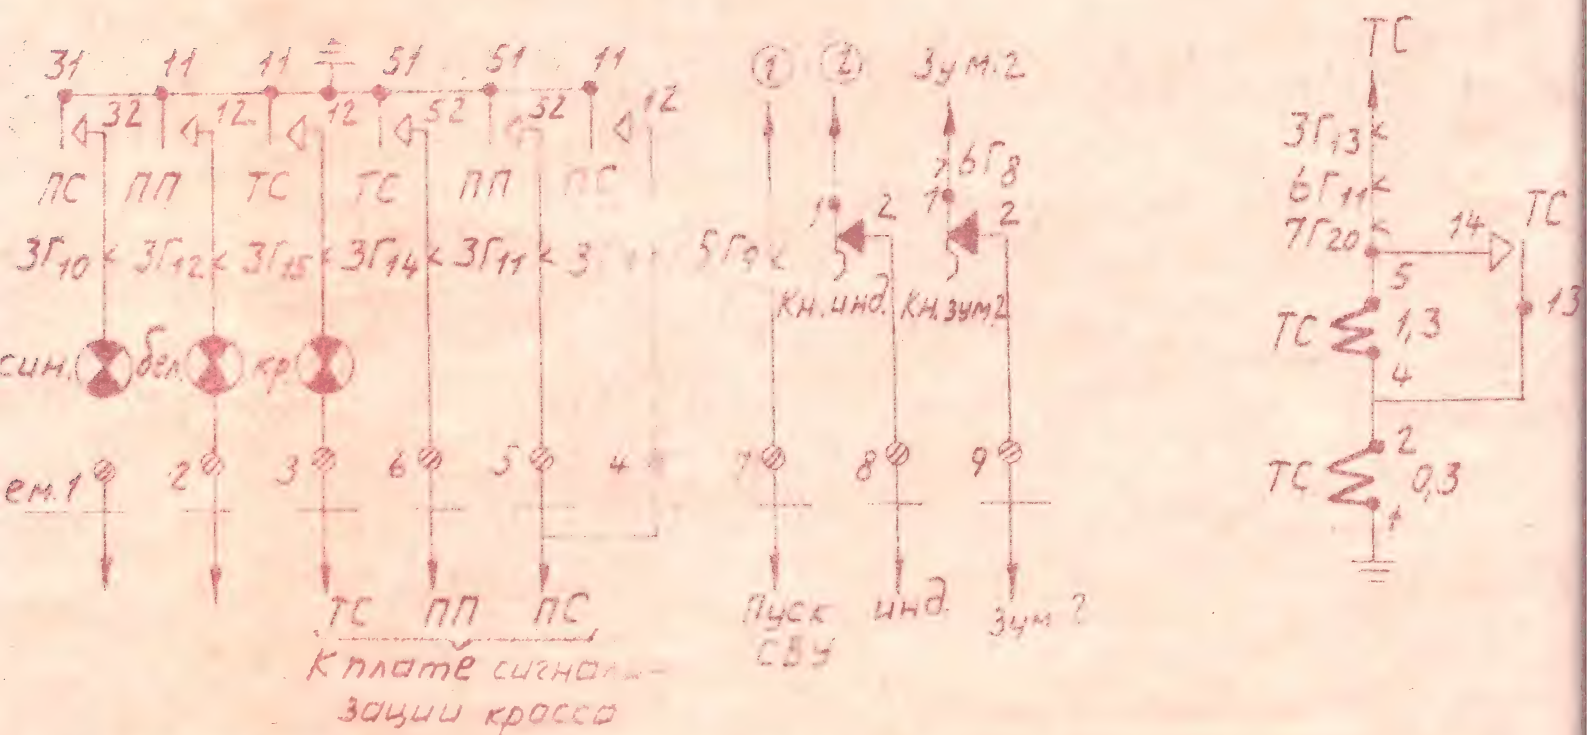 31 11 11 51 51 11
32 12 12 52 52 12
ПС ПП ТС ТС ПП ПС
3Г10 3Г12 3Г15 3Г14 3Г11
син. бел. кр.
ем.1 2 3 6 5 4
ТС ПП ПС
К плате сигнали-
зации кросса
1 2 Зум.2
6Г8
1 2 1 2
5Г9
Кн.инд. Кн.зум.2
7 8 9
Пуск инд. Зум 2
СВУ
ТС
3Г13
6Г11
7Г20 14 ТС
5
ТС 1,3 13
4
2
ТС 0,3
1